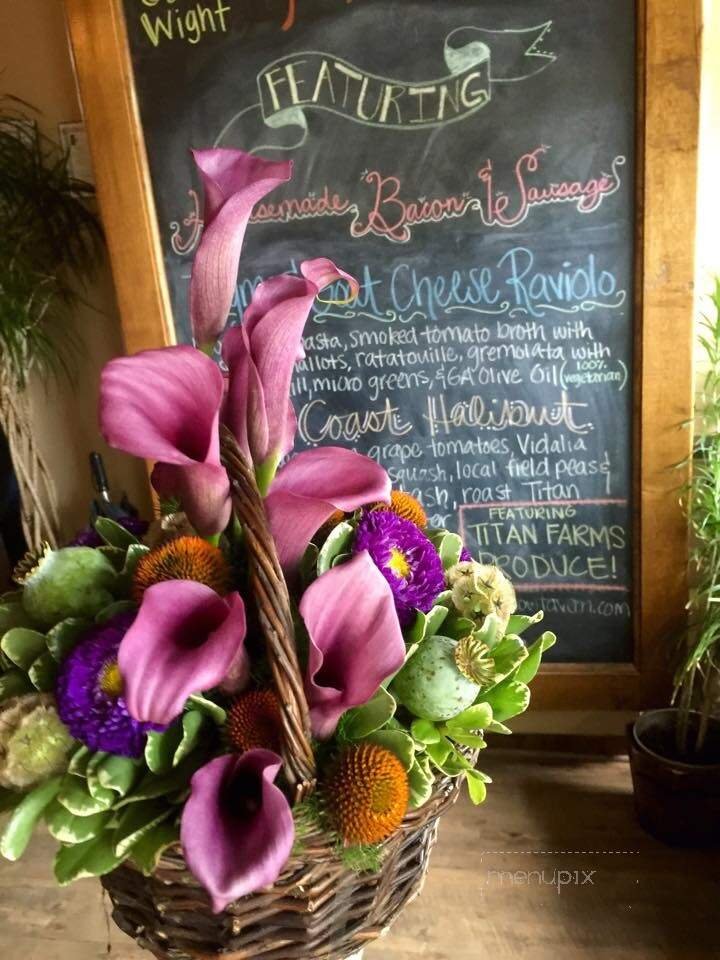 Wight
FEATURING
Bacon & Sausage
Cheese Raviolo
smoked tomato broth with
ratatouille, gremolata with
micro greens, & GA Olive Oil (100% vegetarian)
Coast Halibut
grape tomatoes, Vidalia
squash, local field peas &
roast Titan
FEATURING
TITAN FARMS
PRODUCE!
menupix